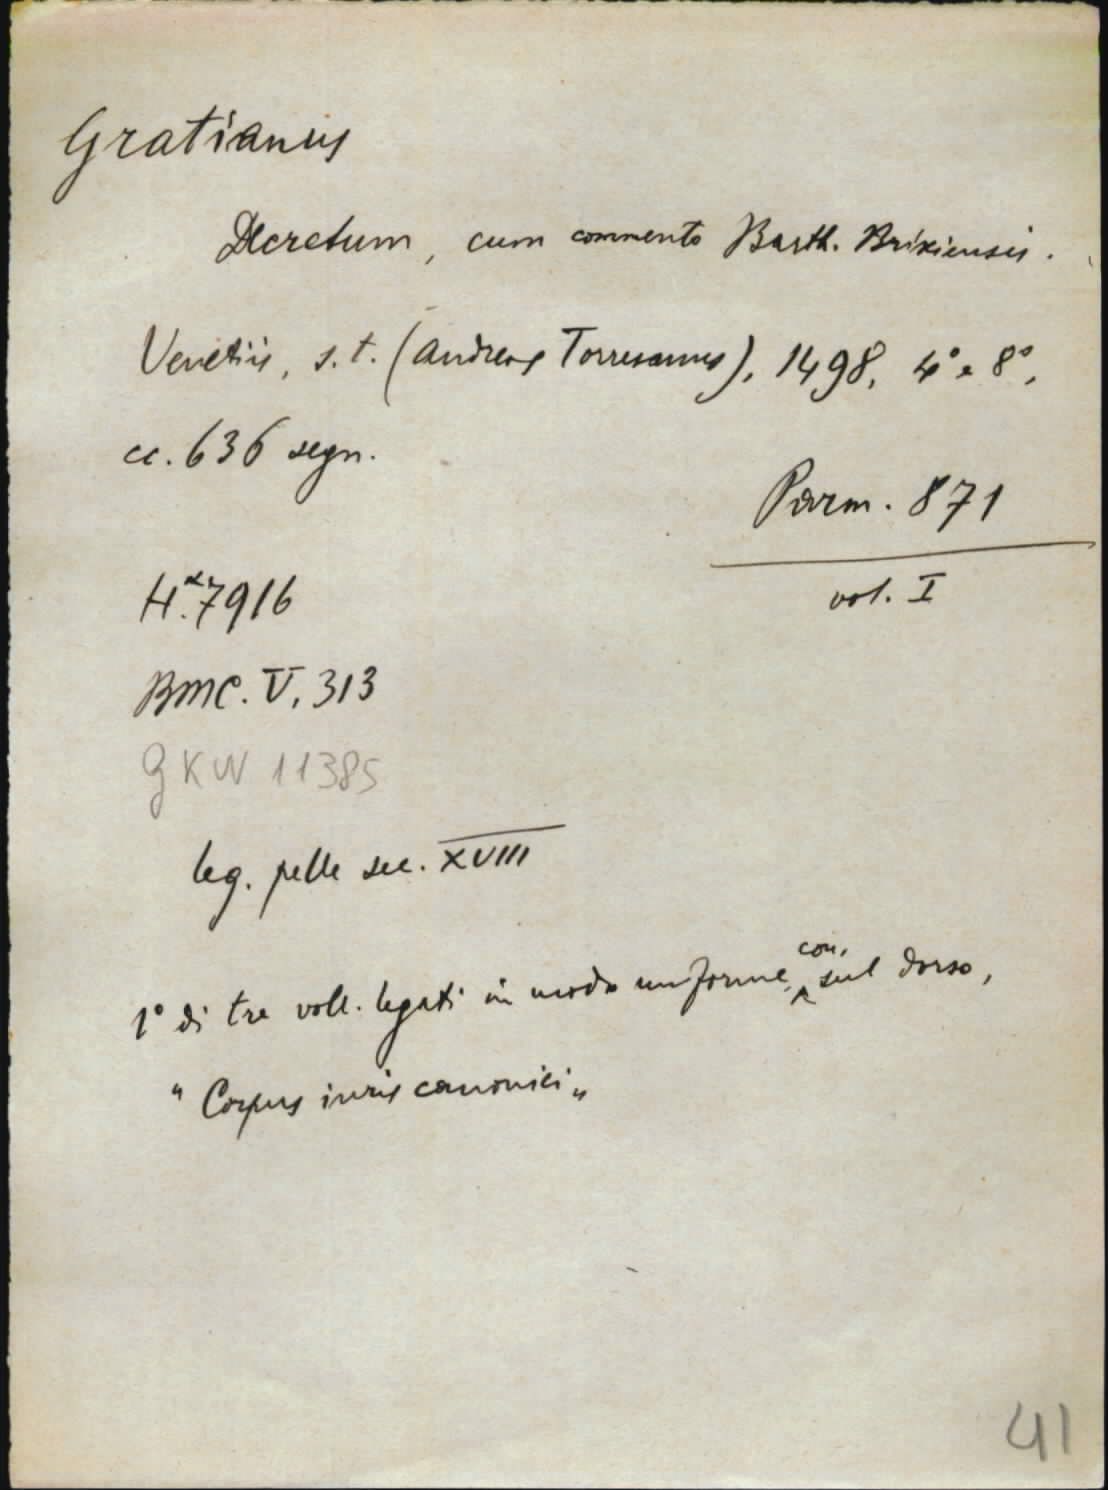 Gratianus
Decretum, cum commento Barth. Brixiensis.
Venetiis, s. t. (Andreas Torresanus), 1498, 4° e 8°,
cc. 636 segn.
Parm. 871
vol. I
H.*7916
BMC. V, 313
GKW 11385
leg. pelle sec. XVIII
1° di tre voll. legati in modo uniforme, con, sul dorso,
"Corpus iuris canonici"
41